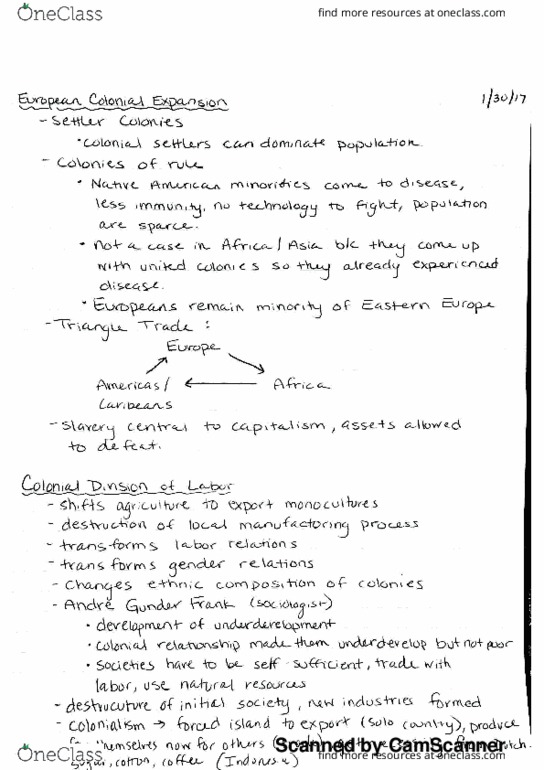 OneClass
find more resources at oneclass.com
European Colonial Expansion
1/30/17
- Settler Colonies
• colonial settlers can dominate population.
- Colonies of rule
• Native American minorities come to disease,
less immunity, no technology to fight, population
are sparce.
• not a case in Africa/Asia b/c they come up
with united colonies so they already experienced
disease.
• Europeans remain minority of Eastern Europe
- Triangle Trade :
Europe
Americas/
Africa
Caribeans
- Slavery central to capitalism, assets allowed
to defeat.
Colonial Division of Labor
- shifts agriculture to export monocultures
- destruction of local manufactoring process
- transforms labor relations
- transforms gender relations
- Changes ethnic composition of colonies
- André Gunder Frank (sociologist)
• development of underdevelopment
• colonial relationship made them underdevelop but not poor
• societies have to be self sufficient, trade with
labor, use natural resources
- destrucuture of initial society, new industries formed
- colonialism → forced island to export (solo country), produce
themselves now for others
Scanned by CamScanner
sugar, cotton, coffee
OneClass
find more resources at oneclass.com